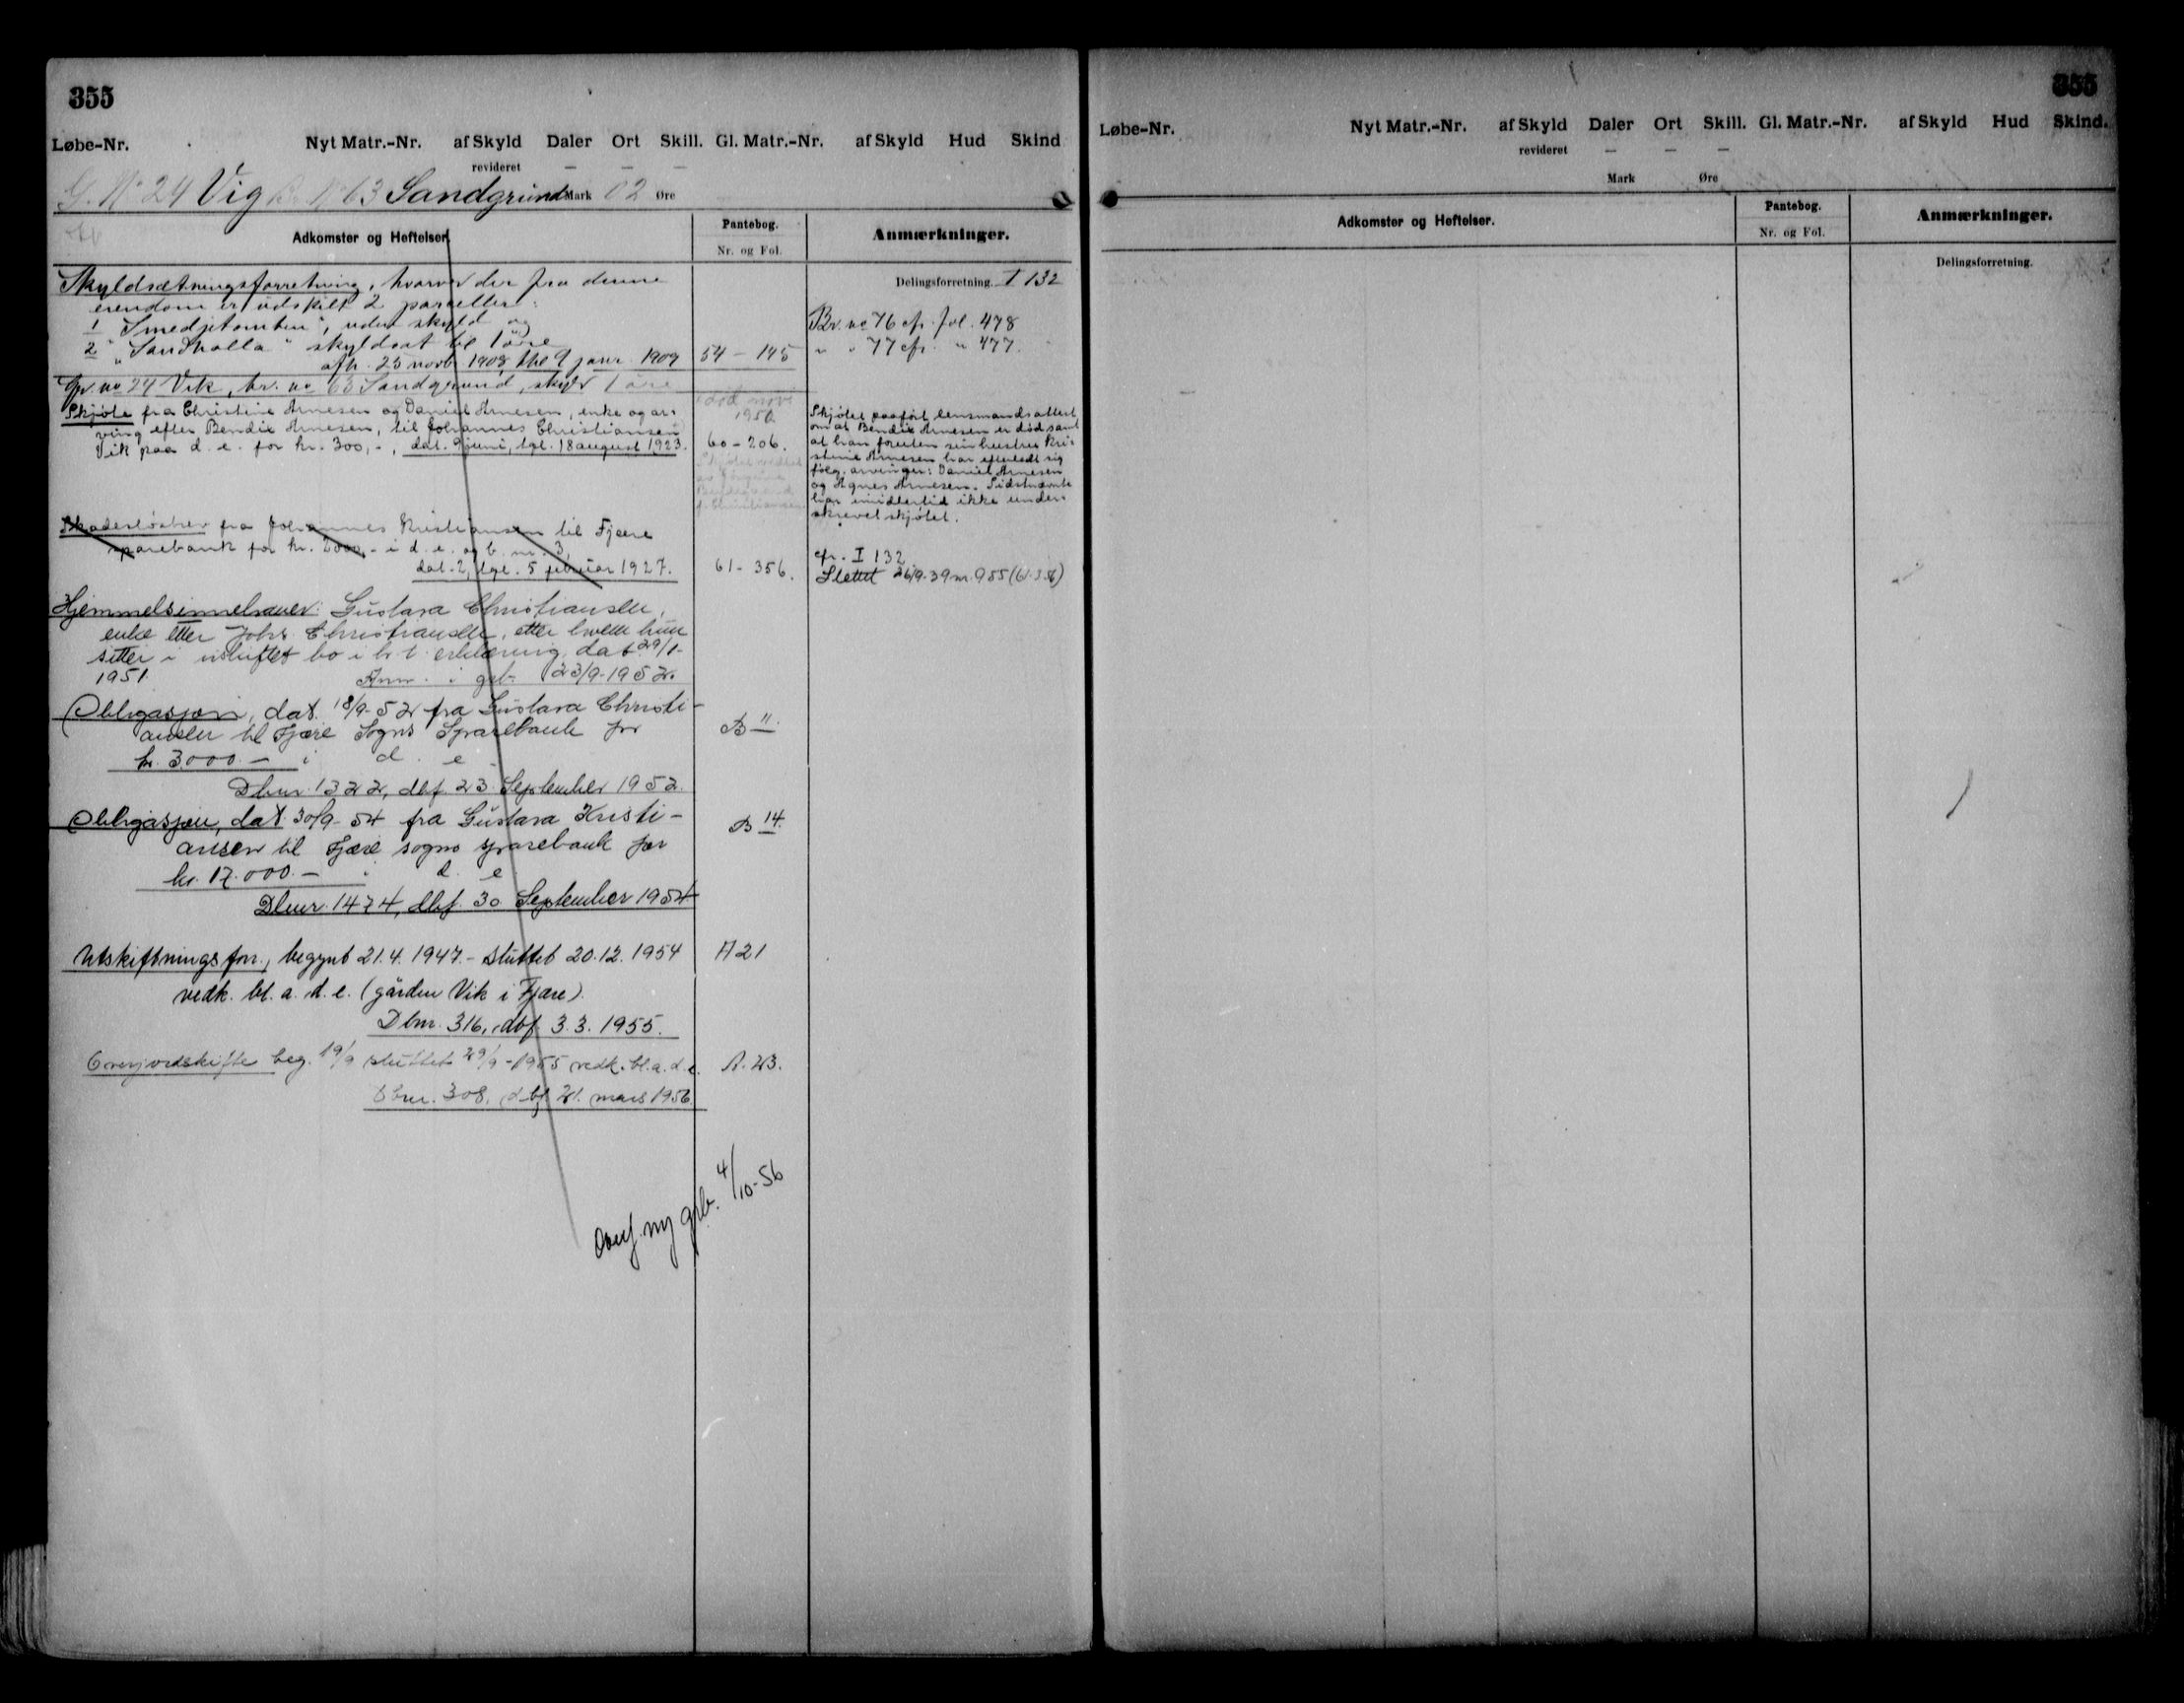 355
Løbe-Nr. Nyt Matr.-Nr. af Skyld Daler Ort Skill. Gl. Matr.-Nr. af Skyld Hud Skind
revideret — — —
G. No 24 Vig B. No 63 Sandgrund Mark 02 Øre
Adkomster og Heftelser.
Pantebog.
Nr. og Fol.
Anmærkninger.
Skyldsætningsforretning, hvorved der fra denne
eiendom er udskilt 2 parceller:
1 "Smedjetomten", uden skyld og
2 "Sandholla" skyldsat til 1 øre
afh. 25 novb. 1908, thl 9 janr. 1909
54 – 145
Delingsforretning. I 132
Br. no 76 cfr. fol. 478
" " 77 cfr. " 477.
Gr. no 24 Vik, br. no 63 Sandgrund, skyld 1 øre
Skjøte fra Christine Arnesen og Daniel Arnesen, enke og ar-
ving efter Bendix Arnesen, til Johannes Christiansen
Vik paa d. e. for kr. 300,-, dat. 9 juni, tgl. 18 august 1923.
død nov
1950
60 – 206.
Skjøtet paaført lensmandsattest
om at Bendix Arnesen er død samt
at han foruten sin hustru Kri-
stine Arnesen har efterladt sig
følg. arvinger: Daniel Arnesen
og Agnes Arnesen. Sidstnævnte
har imidlertid ikke under-
skrevet skjøtet.
Skadesløsbrev fra Johannes Kristiansen til Fjære
sparebank for kr. 2000,- i d. e. og b. nr. 3,
dat. 2, tgl. 5 februar 1927.
61 – 356.
cfr. I 132
Slettet 26/9-39 nr. 955 (61-356)
Hjemmelsinnehaver: Gustava Christiansen,
enke etter Johs Christiansen, etter hvem hun
sitter i uskiftet bo i h. t. erklæring, dat 29/1-
1951. Anm. i grb. 23/9-1952.
Obligasjon, dat. 18/9-52 fra Gustava Christi-
ansen til Fjære Sogns Sparebank for
kr. 3000.— i d. e.
Dbnr. 1322, dbf 23 September 1952.
B 11.
Obligasjon, dat 30/9-54 fra Gustava Kristi-
ansen til Fjære sogns sparebank for
kr. 17.000.— i d. e.
Dbnr. 1474, dbf. 30 September 1954
B 14.
Utskiftningsforr., begynt 21.4.1947.- sluttet 20.12.1954
vedk. bl. a. d. e. (gården Vik i Fjære).
Dbnr. 316, dbf 3.3.1955.
A 21
Overjordskifte beg. 19/9 sluttet 29/9-1955 vedk. bl. a. d. e.
Dbnr. 308, dbf 21. mars 1956
A. 23.
Overf. ny grb. 4/10-56
355
Løbe-Nr. Nyt Matr.-Nr. af Skyld Daler Ort Skill. Gl. Matr.-Nr. af Skyld Hud Skind.
revideret — — —
Mark Øre
Adkomster og Heftelser.
Pantebog.
Nr. og Fol.
Anmærkninger.
Delingsforretning.